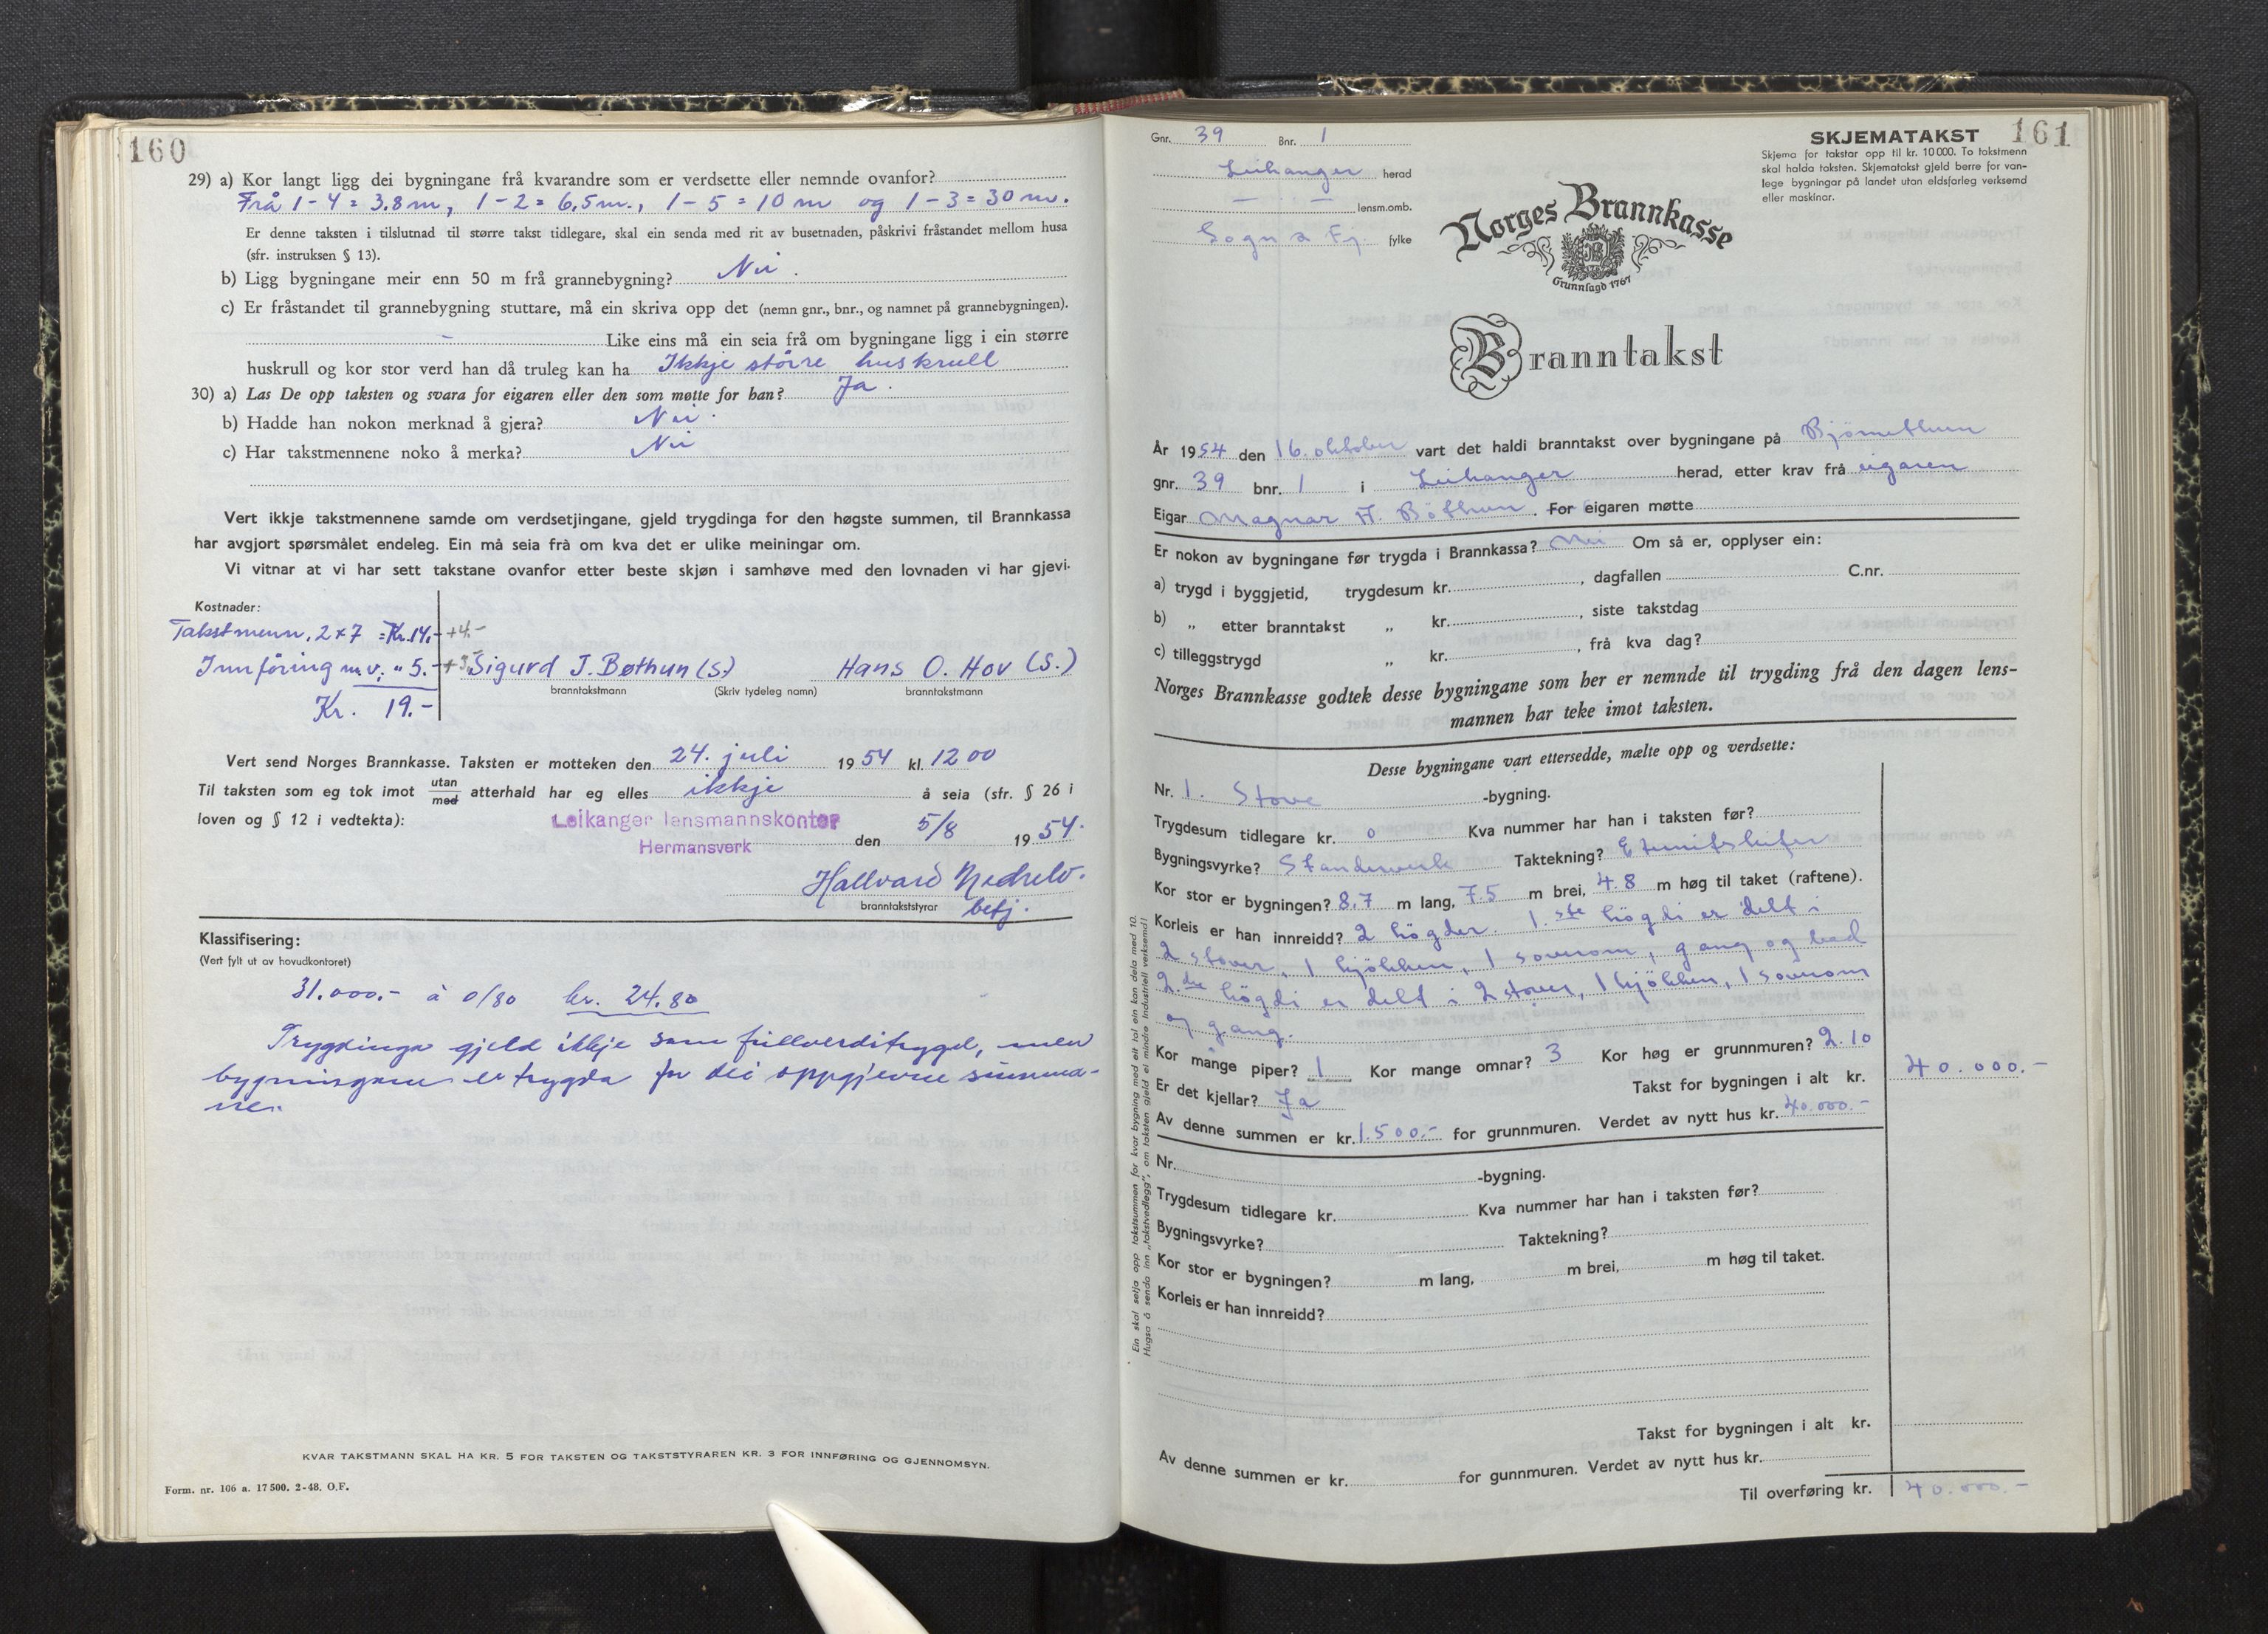 160
29) a) Kor langt ligg dei bygningane frå kvarandre som er verdsette eller nemnde ovanfor?
Frå 1-4 = 3.8m, 1-2 = 6,5m., 1-5 = 10 m og 1-3 = 30 m.
Er denne taksten i tilslutnad til større takst tidlegare, skal ein senda med rit av busetnaden, påskrivi fråstandet mellom husa
(sfr. instruksen § 13).
b) Ligg bygningane meir enn 50 m frå grannebygning? Nei.
c) Er fråstandet til grannebygning stuttare, må ein skriva opp det (nemn gnr., bnr., og namnet på grannebygningen).
- Like eins må ein seia frå om bygningane ligg i ein større
huskrull og kor stor verd han då truleg kan ha Ikkje större huskrull
30) a) Las De opp taksten og svara for eigaren eller den som møtte for han? Ja.
b) Hadde han nokon merknad å gjera? Nei.
c) Har takstmennene noko å merka? Nei
Vert ikkje takstmennene samde om verdsetjingane, gjeld trygdinga for den høgste summen, til Brannkassa
har avgjort spørsmålet endeleg. Ein må seia frå om kva det er ulike meiningar om.
Vi vitnar at vi har sett takstane ovanfor etter beste skjøn i samhøve med den lovnaden vi har gjevi.
Kostnader:
Takstmenn, 2x7 = Kr. 14.- +4.-
Innföring m.v. " 5.- Sigurd J. Bøthun (s) Hans O. Hov (S.)
branntakstmann (Skriv tydeleg namn) branntakstmann
Kr. 19.-
Vert send Norges Brannkasse. Taksten er motteken den 24. juli 1954 kl. 12 00
Til taksten som eg tok imot utan/med atterhald har eg elles ikkje å seia (sfr. § 26 i
loven og § 12 i vedtekta):
Leikanger lensmannskontor
Hermansverk den 5/8 1954.
Hallvard Nedrelo.
branntakststyrar betj.
Klassifisering:
(Vert fylt ut av hovudkontoret)
31.000.- à 0/80 kr. 24.80
Trygdinga gjeld ikkje som fullverditrygd, men
bygningane er trygda for dei oppgjevne summa-
ne.
KVAR TAKSTMANN SKAL HA KR. 5 FOR TAKSTEN OG TAKSTSTYRAREN KR. 3 FOR INNFØRING OG GJENNOMSYN.
Form. nr. 106 a. 17 500. 2-48. O.F.
161
Gnr. 39 Bnr. 1
Leikanger herad
lensm.omb.
Sogn & Fj. fylke
SKJEMATAKST
Skjema for takstar opp til kr. 10 000. To takstmenn
skal halda taksten. Skjematakst gjeld berre for van-
lege bygningar på landet utan eldsfarleg verksemd
eller maskinar.
Norges Brannkasse
Grunnlagd 1767
Branntakst
År 1954 den 16. oktober vart det haldi branntakst over bygningane på Björnethun
gnr. 39 bnr. 1 i Leikanger herad, etter krav frå eigaren
Eigar Magnar A. Böthun. For eigaren møtte
Er nokon av bygningane før trygda i Brannkassa? Nei Om så er, opplyser ein:
a) trygd i byggjetid, trygdesum kr. , dagfallen C.nr.
b) „ etter branntakst „ kr. , siste takstdag
c) tilleggstrygd „ kr. , frå kva dag?
Norges Brannkasse godtek desse bygningane som her er nemnde til trygding frå den dagen lens-
mannen har teke imot taksten.
Desse bygningane vart ettersedde, mælte opp og verdsette:
Nr. 1. Stove -bygning.
Trygdesum tidlegare kr. 0 Kva nummer har han i taksten før?
Bygningsvyrke? Standerverk Taktekning? Eternitskifer
Kor stor er bygningen? 8,7 m lang, 7.5 m brei, 4.8 m høg til taket (raftene).
Korleis er han innreidd? 2 högder. 1.ste högdi er delt i
2 stover, 1 kjökken, 1 soverom, gang og bad
2.dre högdi er delt i 2 stover, 1 kjökken, 1 soverom
og gang.
Kor mange piper? 1 Kor mange omnar? 3 Kor høg er grunnmuren? 2.10
Er det kjellar? Ja Takst for bygningen i alt kr. 40.000.-
Av denne summen er kr. 1.500.- for grunnmuren. Verdet av nytt hus kr. 40.000.-
Nr. -bygning.
Trygdesum tidlegare kr. Kva nummer har han i taksten før?
Bygningsvyrke? Taktekning?
Kor stor er bygningen? m lang, m brei, m høg til taket.
Korleis er han innreidd?
Takst for bygningen i alt kr.
Av denne summen er kr. for gunnmuren. Verdet av nytt hus kr.
Til overføring kr. 40.000.-
Ein skal setja opp takstsummen for kvar bygning med eit tal ein kan dela med 10.
Hugsa å senda inn „takstvedlegg", om taksten gjeld ei mindre industriell verksemd!